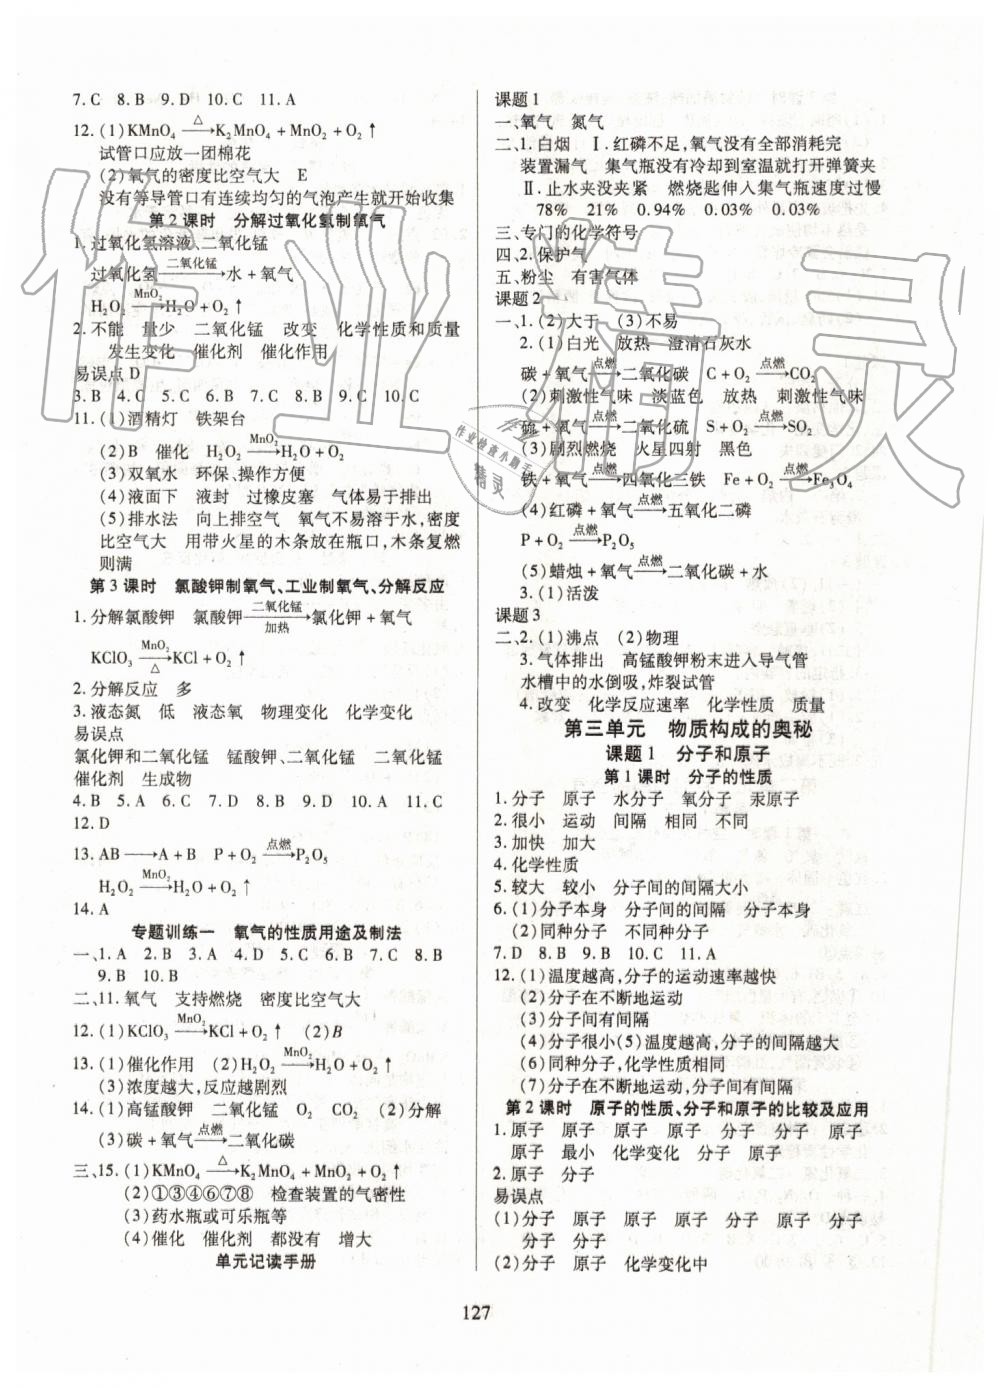 7. C  8. B  9. D  10. C  11. A
12. (1) KMnO₄ —△→ K₂MnO₄ + MnO₂ + O₂ ↑
试管口应放一团棉花
(2)氧气的密度比空气大  E
没有等导管口有连续均匀的气泡产生就开始收集
第2课时  分解过氧化氢制氧气
1. 过氧化氢溶液、二氧化锰
过氧化氢 —二氧化锰→ 水 + 氧气
H₂O₂ —MnO₂→ H₂O + O₂ ↑
2. 不能  量少  二氧化锰  改变  化学性质和质量
发生变化  催化剂  催化作用
易误点 D
3. B  4. C  5. C  6. B  7. C  8. B  9. C  10. C
11. (1)酒精灯  铁架台
(2)B  催化  H₂O₂ —MnO₂→ H₂O + O₂
(3)双氧水  环保、操作方便
(4)液面下  液封  过橡皮塞  气体易于排出
(5)排水法  向上排空气  氧气不易溶于水,密度
比空气大  用带火星的木条放在瓶口,木条复燃
则满
第3课时  氯酸钾制氧气、工业制氧气、分解反应
1. 分解氯酸钾  氯酸钾 —二氧化锰/加热→ 氯化钾 + 氧气
KClO₃ —MnO₂/△→ KCl + O₂ ↑
2. 分解反应  多
3. 液态氮  低  液态氧  物理变化  化学变化
易误点
氯化钾和二氧化锰  锰酸钾、二氧化锰  二氧化锰
催化剂  生成物
4. B  5. A  6. C  7. D  8. B  9. D  10. A  11. C
12. D
13. AB ——→ A + B  P + O₂ —点燃→ P₂O₅
H₂O₂ —MnO₂→ H₂O + O₂ ↑
14. A
专题训练一  氧气的性质用途及制法
一、1. A  2. B  3. A  4. D  5. C  6. B  7. C  8. B
9. B  10. B
二、11. 氧气  支持燃烧  密度比空气大
12. (1)KClO₃ —MnO₂→ KCl + O₂ ↑  (2)B
13. (1)催化作用  (2)H₂O₂ —MnO₂→ H₂O + O₂ ↑
(3)浓度越大,反应越剧烈
14. (1)高锰酸钾  二氧化锰  O₂  CO₂  (2)分解
(3)碳 + 氧气 —点燃→ 二氧化碳
三、15. (1)KMnO₄ —△→ K₂MnO₄ + MnO₂ + O₂ ↑
(2)①③④⑥⑦⑧  检查装置的气密性
(3)药水瓶或可乐瓶等
(4)催化  催化剂  都没有  增大
单元记读手册
课题1
一、氧气  氮气
二、1. 白烟  Ⅰ. 红磷不足,氧气没有全部消耗完
装置漏气  集气瓶没有冷却到室温就打开弹簧夹
Ⅱ. 止水夹没夹紧  燃烧匙伸入集气瓶速度过慢
78%  21%  0.94%  0.03%  0.03%
三、专门的化学符号
四、2. 保护气
五、粉尘  有害气体
课题2
一、1. (2)大于  (3)不易
2. (1)白光  放热  澄清石灰水
碳 + 氧气 —点燃→ 二氧化碳  C + O₂ —点燃→ CO₂
(2)刺激性气味  淡蓝色  放热  刺激性气味
硫 + 氧气 —点燃→ 二氧化硫  S + O₂ —点燃→ SO₂
(3)剧烈燃烧  火星四射  黑色
铁 + 氧气 —点燃→ 四氧化三铁  Fe + O₂ —点燃→ Fe₃O₄
(4)红磷 + 氧气 —点燃→ 五氧化二磷
P + O₂ —点燃→ P₂O₅
(5)蜡烛 + 氧气 —点燃→ 二氧化碳 + 水
3. (1)活泼
课题3
二、2. (1)沸点  (2)物理
3. 气体排出  高锰酸钾粉末进入导气管
水槽中的水倒吸,炸裂试管
4. 改变  化学反应速率  化学性质  质量
第三单元  物质构成的奥秘
课题1  分子和原子
第1课时  分子的性质
1. 分子  原子  水分子  氧分子  汞原子
2. 很小  运动  间隔  相同  不同
3. 加快  加大
4. 化学性质
5. 较大  较小  分子间的间隔大小
6. (1)分子本身  分子间的间隔  分子本身
(2)同种分子  不同种分子
7. D  8. B  9. B  10. C  11. A
12. (1)温度越高,分子的运动速率越快
(2)分子在不断地运动
(3)分子间有间隔
(4)分子很小(5)温度越高,分子的间隔越大
(6)同种分子,化学性质相同
(7)分子在不断地运动,分子间有间隔
第2课时  原子的性质、分子和原子的比较及应用
1. 原子  原子  原子  分子  分子  分子  原子
原子  最小  化学变化  分子  原子
2. 原子  分子
易误点
(1)分子  原子  原子  原子  分子  原子  分子
分子  分子
(2)分子  原子  化学变化中
127
作业精灵
作业精灵
作业检查小助手